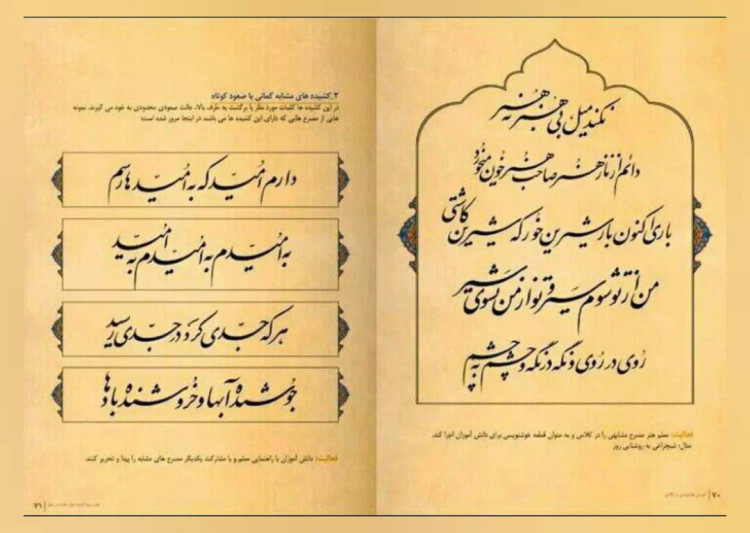 نکند میل بی هنر به هنر
دائم از ناز هنر صاحب هنر خون میخورد
باری اکنون بار شیرین خور که شیرین کاشتی
من از تو سوم سیر و تو از من نشوی سیر
روی در روی و نگه در نگه و چشم به چشم
فعالیت: معلم هنر مصرع مشابهی را در کلاس و به عنوان قطعه خوشنویسی برای دانش آموزان اجرا کند.
مثال: شبچراغی به روشنایی روز
۷۰
۲_کشیده های مشابه کمانی با صعود کوتاه
در این کشیده ها کلمات مورد نظر با برگشت به طرف بالا، حالت صعودی محدودی به خود می گیرند. نمونه
هایی از مصرع هایی که دارای این کشیده ها می باشند در اینجا مرور شده است؛
دارم امید که به امید ها رسم
به امیدم به امیدم به امید
هر که جدی کرد در جدی رسید
جوشنده آبها و خروشنده بادها
فعالیت: دانش آموزان با راهنمایی معلم و با مشارکت یکدیگر مصرع های مشابه را پیدا و تحریر کنند.
۷۱